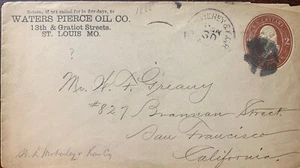 Return, if not called for in five days, to
WATERS PIERCE OIL CO.
13th & Gratiot Streets.
ST. LOUIS MO.
Mr. W. F. Greany
#827 Brannan Street
San Francisco
California.